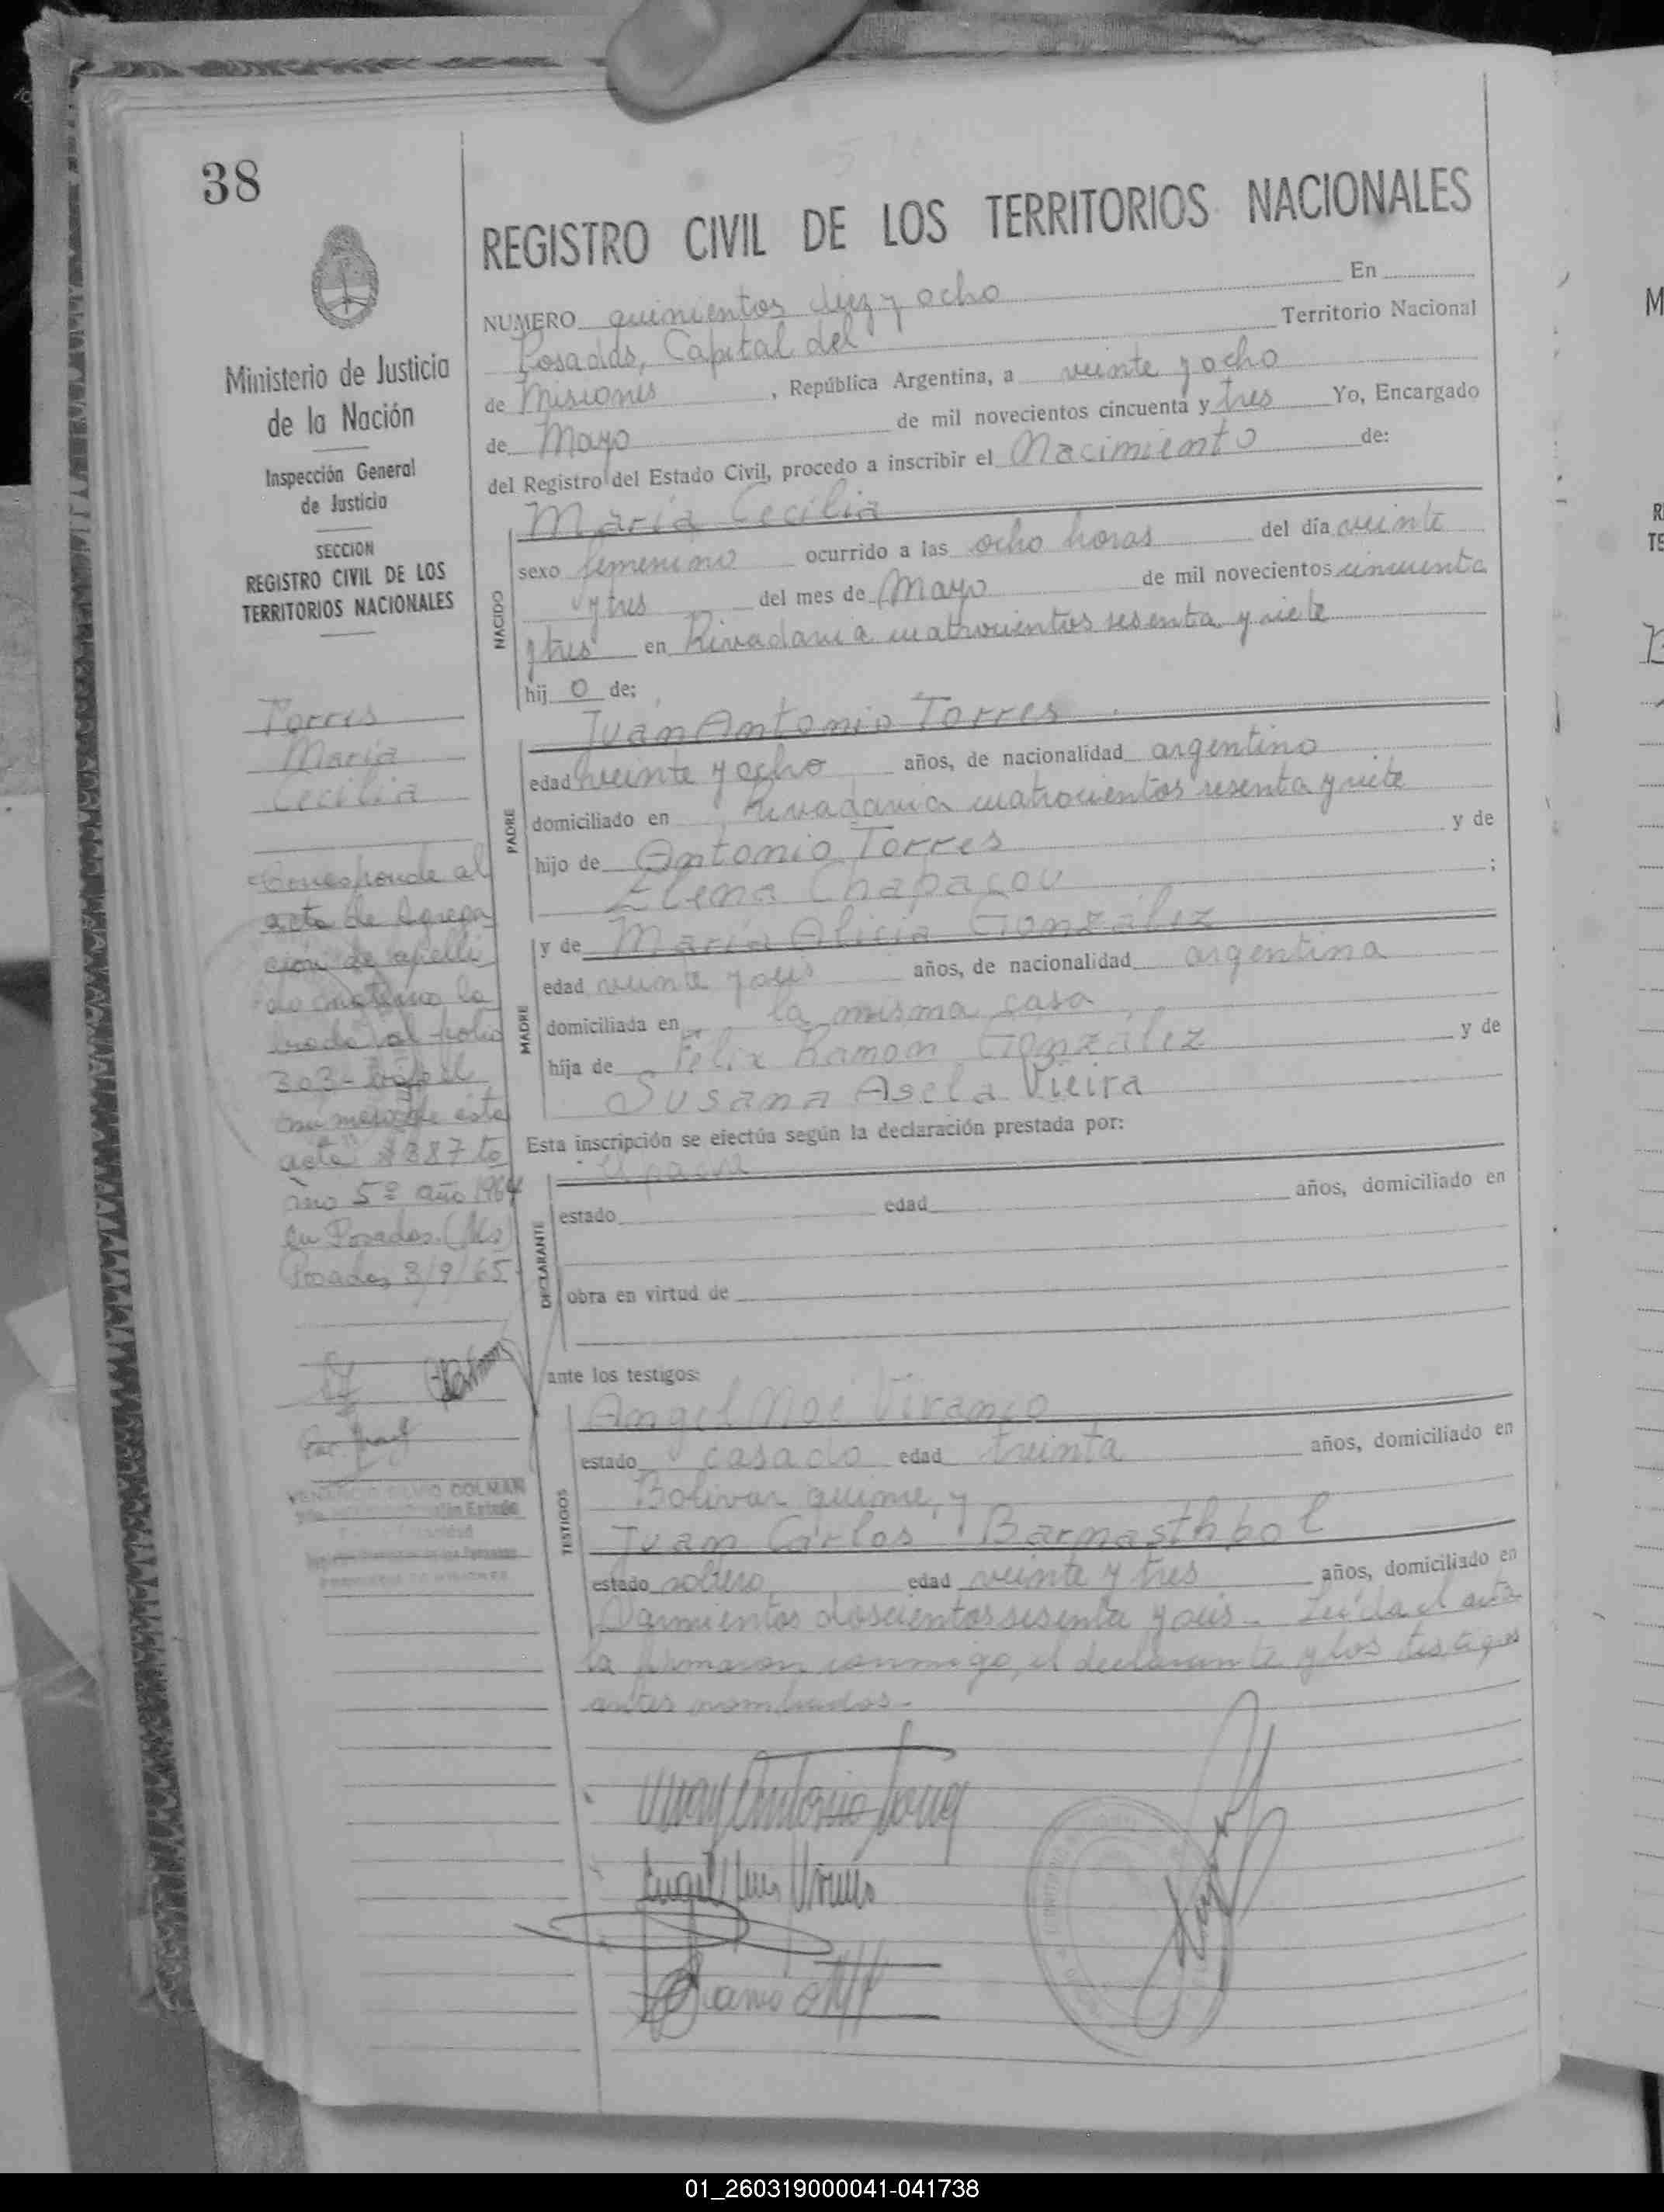 38
Ministerio de Justicia
de la Nación
Inspección General
de Justicia
SECCION
REGISTRO CIVIL DE LOS
TERRITORIOS NACIONALES
Torres
María
Cecilia
Corresponde al
acta de Agrega
ción de apelli
do materno la
brada al folio
303 - bajo el
numero de esta
acta 387 to
mo 5º año 1964
en Posadas (Ms)
Posadas 3/9/65
REGISTRO CIVIL DE LOS TERRITORIOS NACIONALES
NUMERO quinientos diez y ocho En
Posadas, Capital del Territorio Nacional
de Misiones, República Argentina, a veinte y ocho
de Mayo de mil novecientos cincuenta y tres Yo, Encargado
del Registro del Estado Civil, procedo a inscribir el Nacimiento de:
NACIDO
María Cecilia
sexo femenino ocurrido a las ocho horas del día veinte
y tres del mes de Mayo de mil novecientos cincuenta
y tres en Rivadavia cuatrocientos sesenta y siete
hij o de;
PADRE
Juan Antonio Torres
edad veinte y ocho años, de nacionalidad argentino
domiciliado en Rivadavia cuatrocientos sesenta y siete
hijo de Antonio Torres y de
Elena Chapacou ;
MADRE
y de María Alicia González
edad veinte y seis años, de nacionalidad argentina
domiciliada en la misma casa,
hija de Félix Ramon González y de
Susana Asela Vieira
Esta inscripción se efectúa según la declaración prestada por:
DECLARANTE
el padre
estado edad años, domiciliado en
obra en virtud de
ante los testigos:
TESTIGOS
Angel Noé Viramo
estado casado edad treinta años, domiciliado en
Bolivar quince, y
Juan Carlos Barmasthbol
estado soltero edad veinte y tres años, domiciliado en
Sarmientos doscientos sesenta y seis. Leída el acta
la firmaron conmigo, el declarante y los testigos
antes nombrados.-
Juan Antonio Torres
01_260319000041-041738